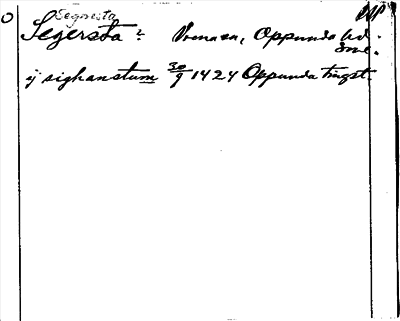 Segersta
Segersta 2 Vrena sn, Oppunda hd.
Sml.
ij sighanstum 30/9 1424 Oppunda tingst.